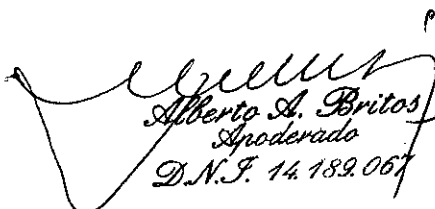 Alberto A. Britos
Apoderado
D.N.I. 14.189.067